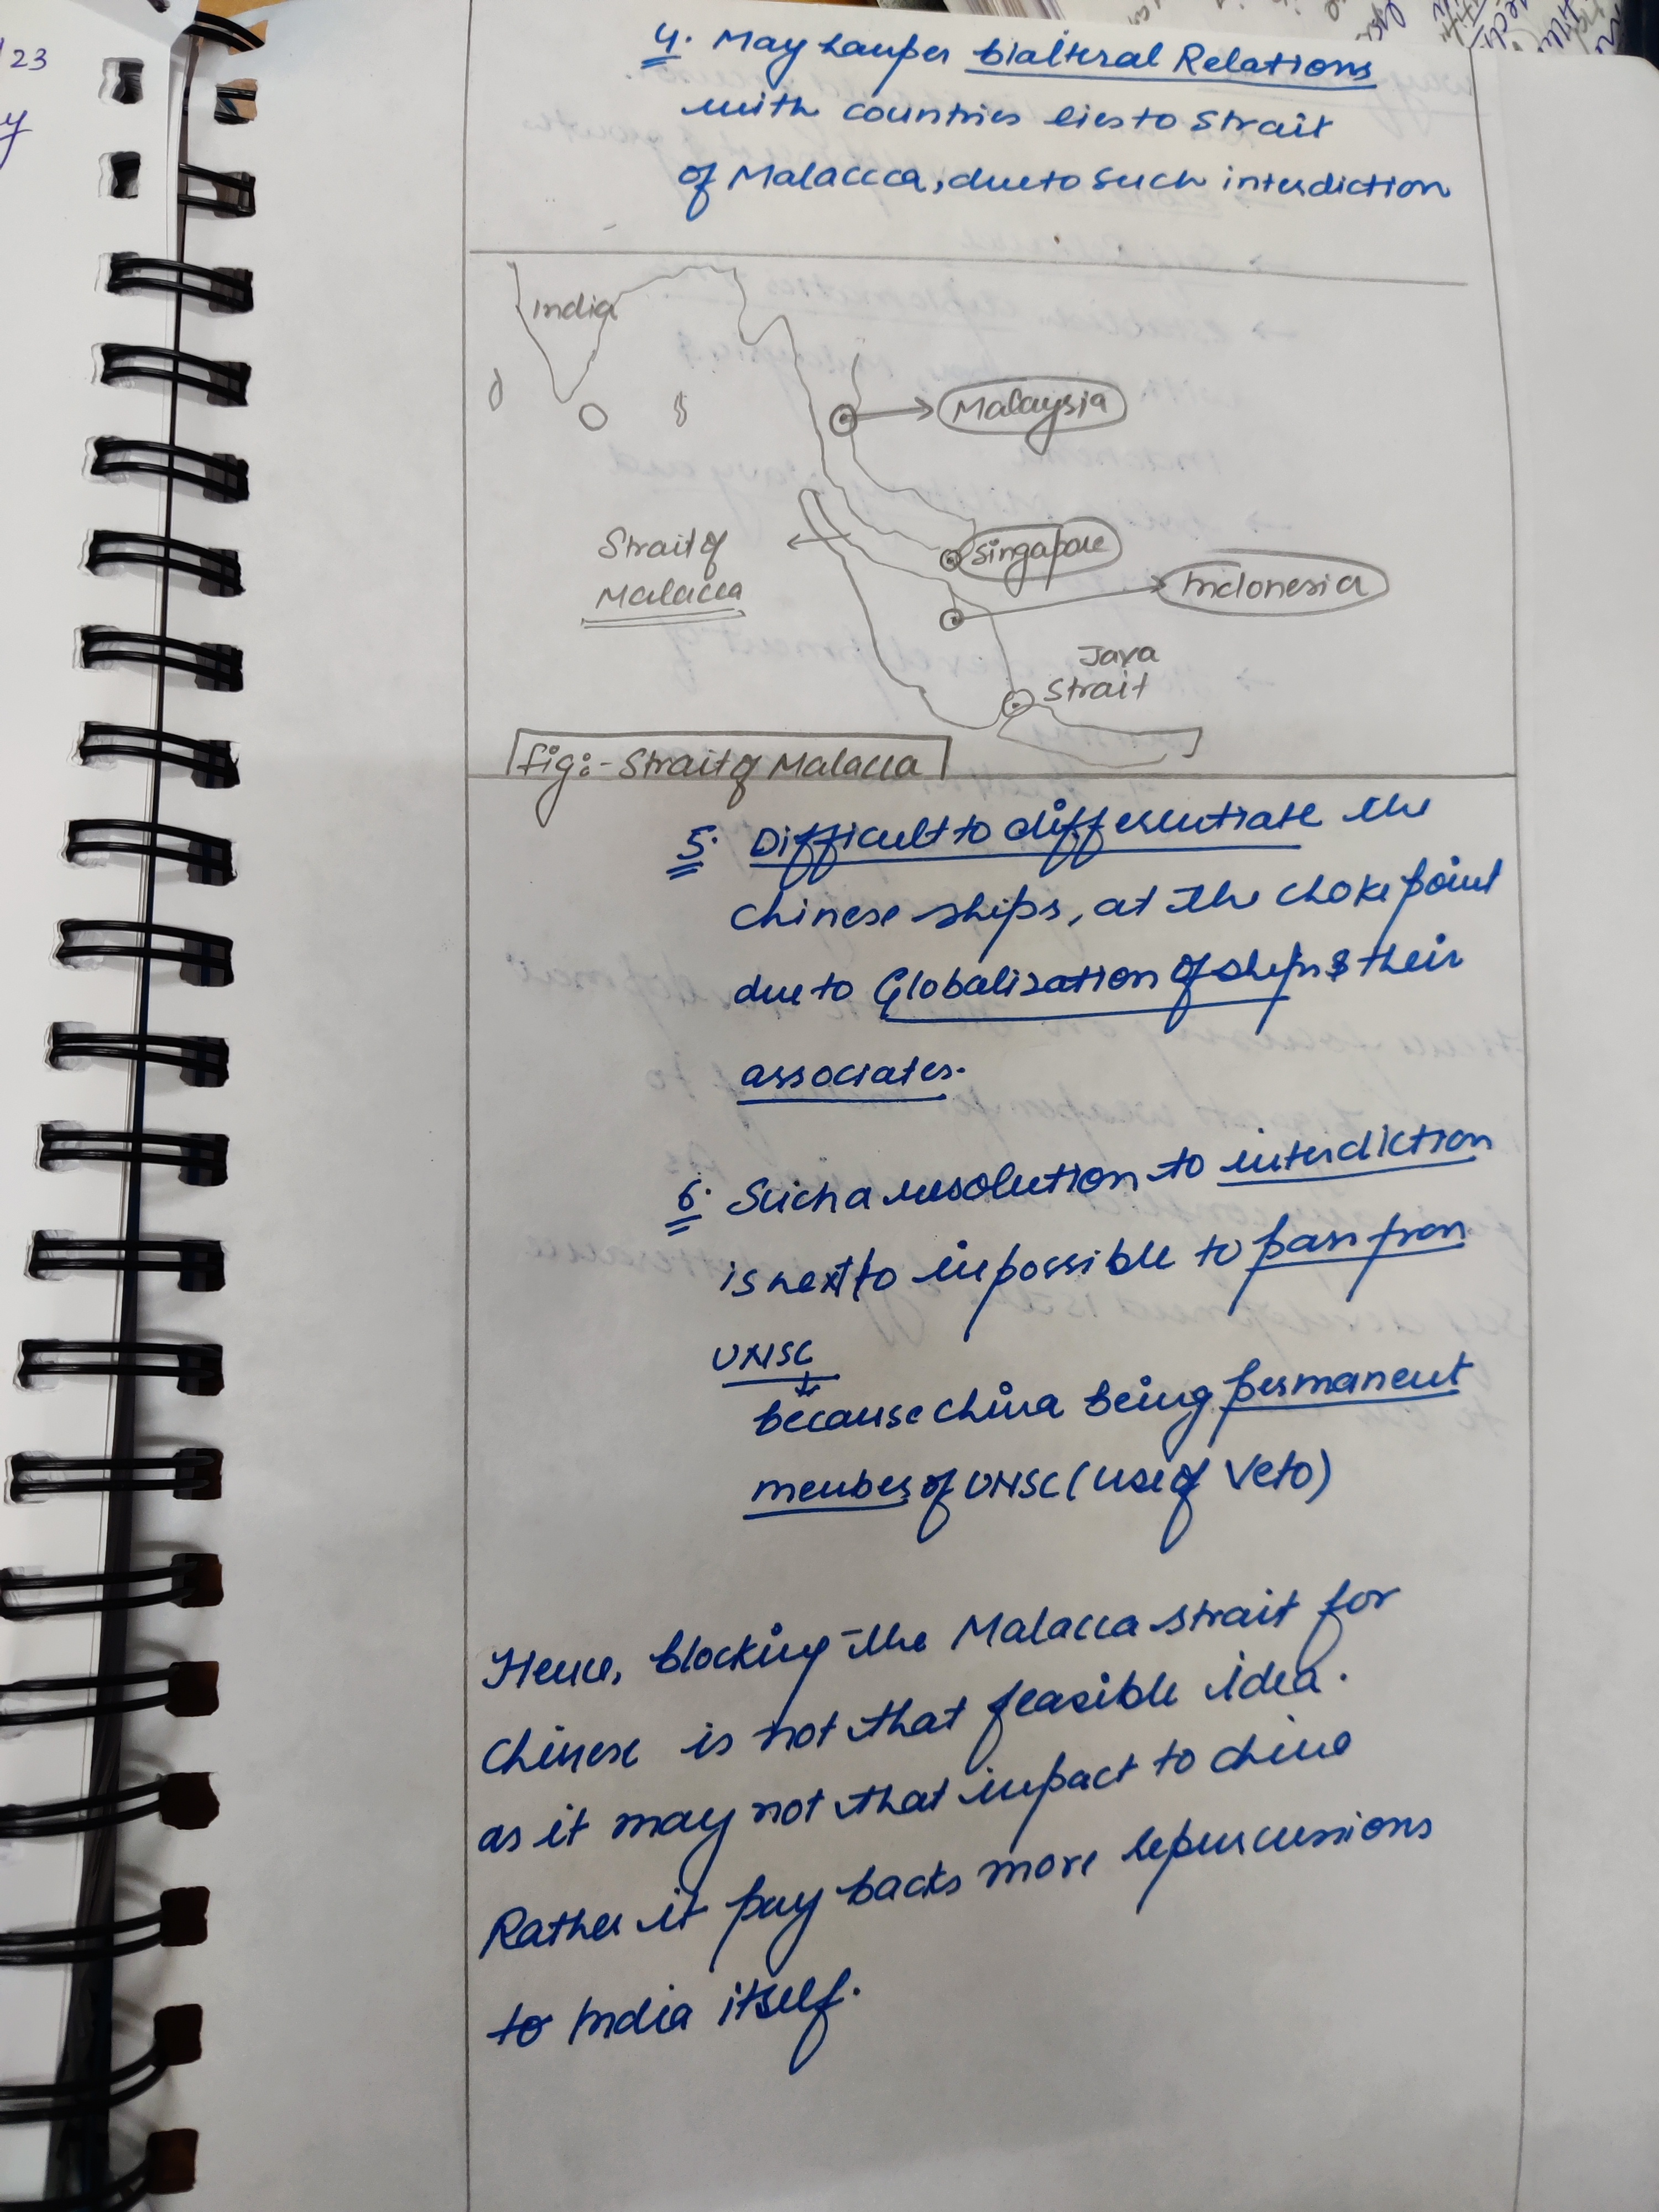 4. May hamper bialteral Relations
with countries lies to Strait
of Malaccca, due to such interdiction
India
Malaysia
Strait of
Malacca
Singapore
Indonesia
Java
Strait
fig:- Strait of Malacca
5. Difficult to differentiate the
Chinese ships, at the choke point
due to Globalization of ships & their
associates.
6. Such a resolution to interdiction
is next to impossible to pass from
UNSC
because China being permanent
member of UNSC (use of Veto)
Hence, blocking the Malacca strait for
Chinese is not that feasible idea.
as it may not that impact to China
Rather it pay backs more repurcussions
to India itself.
23
y